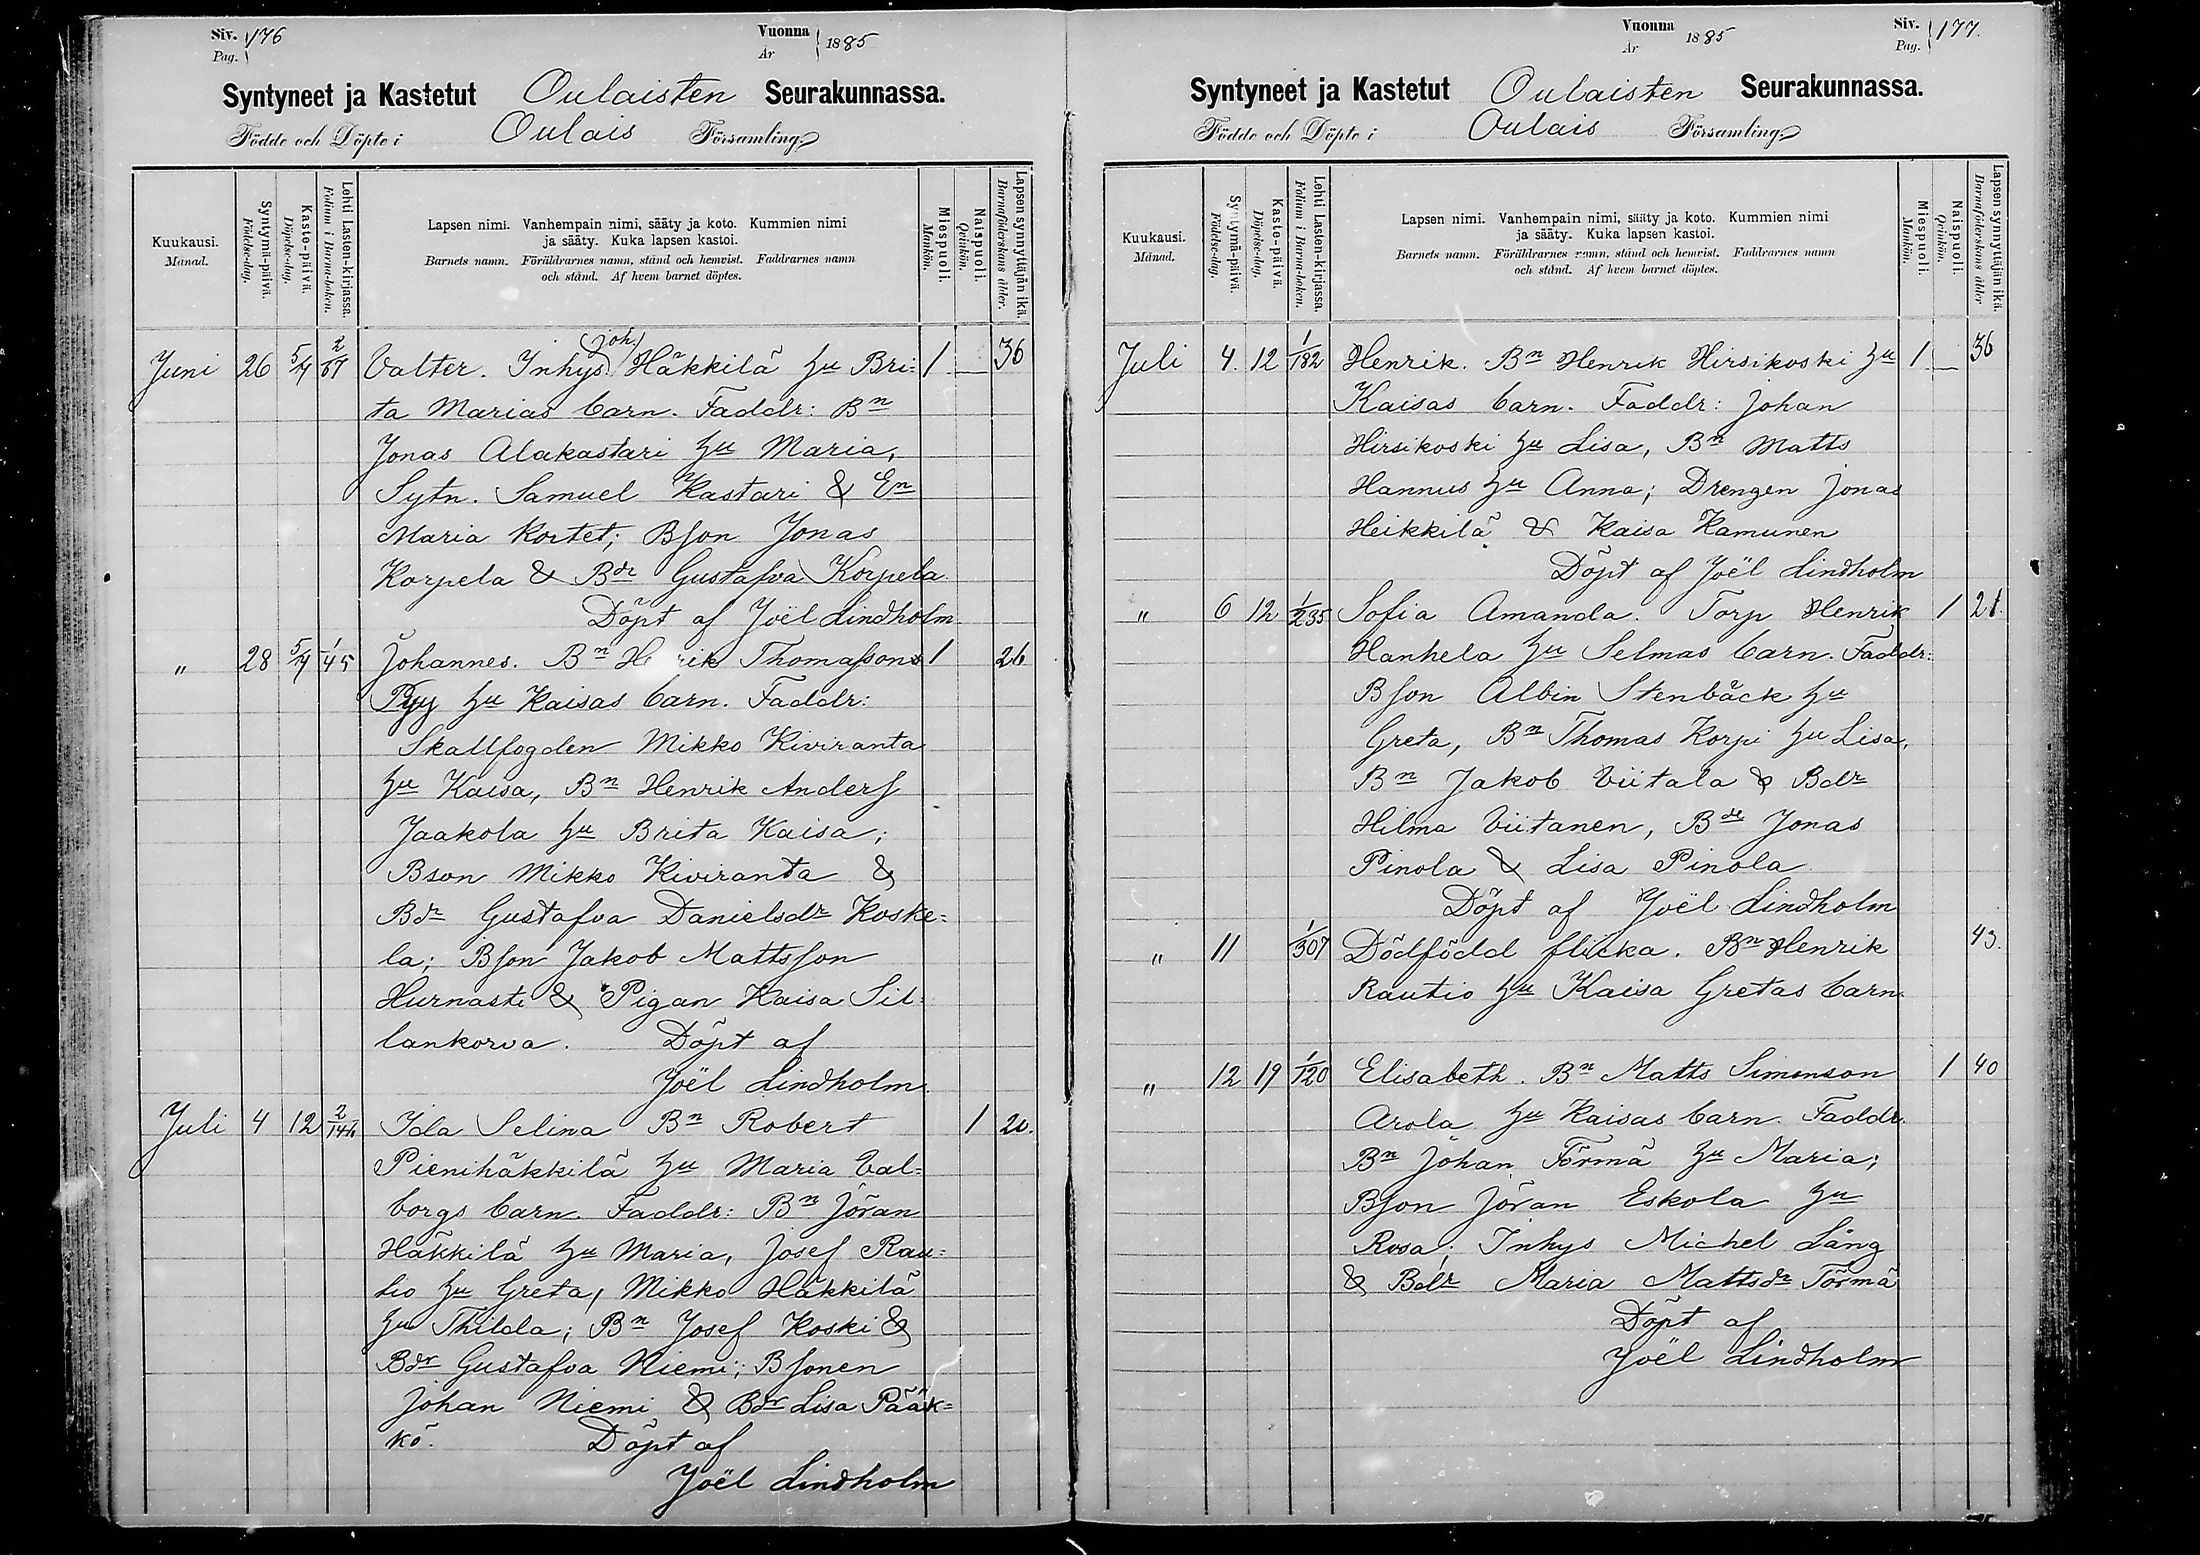 Siv. 176
Pag.
Vuonna 1885
År
Syntyneet ja Kastetut Oulaisten Seurakunnassa.
Födde och Döpte i Oulais Församling
Kuukausi.
Månad.
Syntymä-päivä.
Födelse-dag.
Kaste-päivä.
Döpelse-dag.
Lehti Lasten-kirjassa.
Folium i Barna-boken.
Lapsen nimi. Vanhempain nimi, sääty ja koto. Kummien nimi
ja sääty. Kuka lapsen kastoi.
Barnets namn. Föräldrarnes namn, stånd och hemvist. Faddrarnes namn
och stånd. Af hvem barnet döptes.
Miespuoli.
Mankön.
Naispuoli.
Qvinkön.
Lapsen synnyttäjän ikä.
Barnaföderskans ålder.
Juni 26 5/7 2/61 Valter. Inhys Joh. Häkkilä hu Bri= 1 — 36
ta Marias barn. Faddr: Bn
Jonas Alakastari hu Maria,
Sytn. Samuel Kastari & En
Maria Kortet; Bson Jonas
Korpela & Bdr Gustafva Korpela
Döpt af Joël Lindholm.
" 28 5/7 1/45 Johannes. Bn Henrik Thomassons 1 26
Pyy hu Kaisas barn. Faddr:
Skallfogden Mikko Kiviranta
hu Kaisa, Bn Henrik Anders
Jaakola hu Brita Kaisa;
Bson Mikko Kiviranta &
Bdr Gustafva Danielsdr Koske=
la; Bson Jakob Mattsson
Hurnasti & Pigan Kaisa Sil=
lankorva. Döpt af
Joël Lindholm.
Juli 4 12 2/144 Ida Selina Bn Robert 1 20.
Pienihäkkilä hu Maria Val=
borgs barn. Faddr: Bn Jöran
Häkkilä hu Maria, Josef Rau=
tio hu Greta, Mikko Häkkilä
hu Thilda; Bn Josef Koski &
Bdr Gustafva Niemi; Bsonen
Johan Niemi & Bdr Lisa Pääk=
kö. Döpt af
Joël Lindholm
Vuonna 1885
År
Siv. 177.
Pag.
Syntyneet ja Kastetut Oulaisten Seurakunnassa.
Födde och Döpte i Oulais Församling
Kuukausi.
Månad.
Syntymä-päivä.
Födelse-dag.
Kaste-päivä.
Döpelse-dag.
Lehti Lasten-kirjassa.
Folium i Barna-boken.
Lapsen nimi. Vanhempain nimi, sääty ja koto. Kummien nimi
ja sääty. Kuka lapsen kastoi.
Barnets namn. Föräldrarnes namn, stånd och hemvist. Faddrarnes namn
och stånd. Af hvem barnet döptes.
Miespuoli.
Mankön.
Naispuoli.
Qvinkön.
Lapsen synnyttäjän ikä.
Barnaföderskans ålder
Juli 4. 12 1/182 Henrik. Bn Henrik Hirsikoski hu 1 — 36
Kaisas barn. Faddr: Johan
Hirsikoski hu Lisa, Bn Matts
Hannus hu Anna; Drengen Jonas
Heikkilä & Kaisa Kamunen
Döpt af Joël Lindholm
" 6 12 1/235 Sofia Amanda. Torp Henrik 1 21.
Hanhela hu Selmas barn. Faddr:
Bson Albin Stenbäck hu
Greta, Bn Thomas Korpi hu Lisa,
Bn Jakob Viitala & Bdr
Hilma Viitanen, Bde Jonas
Pinola & Lisa Pinola
Döpt af Joël Lindholm
" 11 1/307 Dödfödd flicka. Bn Henrik 43.
Rautio hu Kaisa Gretas barn.
" 12 19 1/120 Elisabeth. Bn Matts Simonson 1 40
Arola hu Kaisas barn. Faddr.
Bn Johan Törmä hu Maria;
Bson Jöran Eskola hu
Rosa; Inhys Michel Lång
& Bdr Maria Mattsdr Törmä
Döpt af
Joël Lindholm